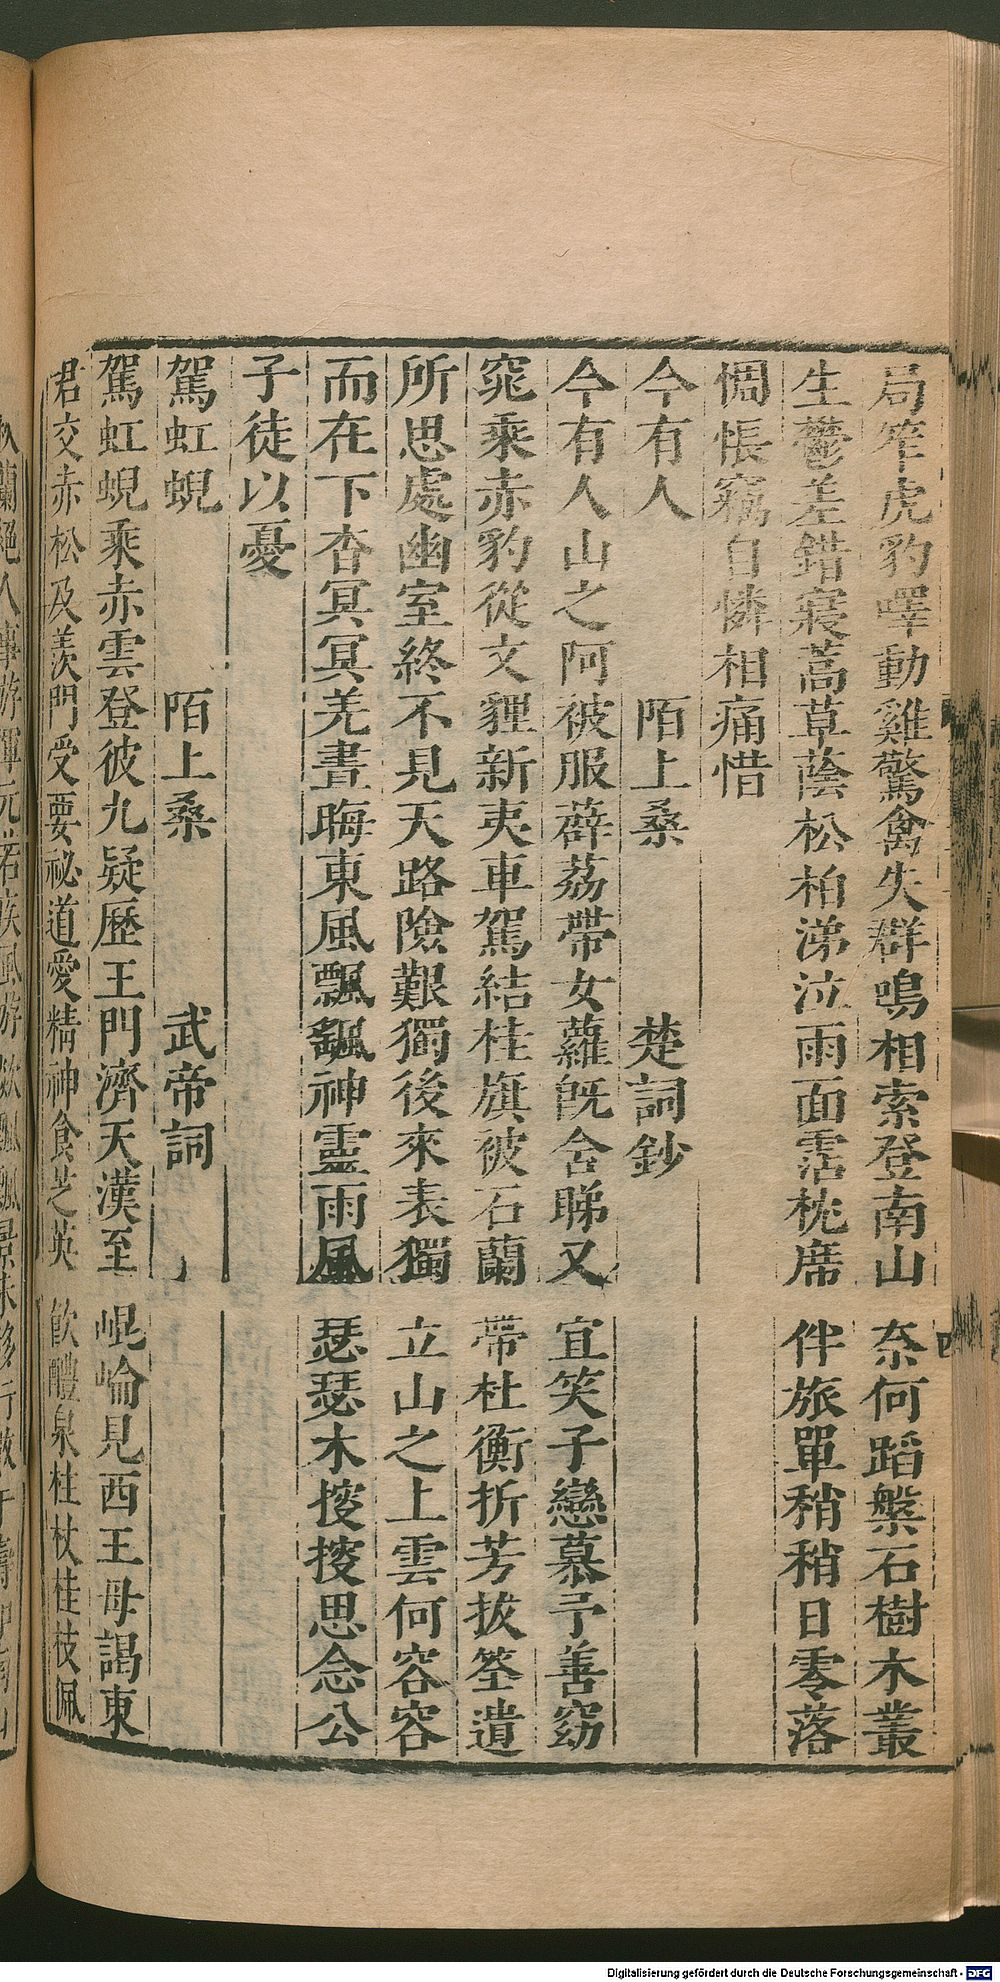 局窄虎豹嘷動雞驚禽失群鳴相索登南山奈何蹈槃石樹木叢
生鬱差錯寢蒿草蔭松柏涕泣雨面霑枕席伴旅單稍稍日零落
惆悵竊自憐相痛惜
今有人 陌上桑 楚詞鈔
今有人山之阿被服薜荔帶女蘿旣含睇又宜笑子戀慕予善窈
窕乘赤豹從文貍新夷車駕結桂旗被石蘭帶杜衡折芳拔筌遺
所思處幽室終不見天路險艱獨後來表獨立山之上雲何容容
而在下杳冥冥羌晝晦東風飄飖神靈雨風瑟瑟木搜搜思念公
子徒以憂
駕虹蜺 陌上桑 武帝詞
駕虹蜺乘赤雲登彼九疑歷王門濟天漢至崐崘見西王母謁東
君交赤松及羨門受要祕道愛精神食芝英飮醴泉柱杖桂枝佩
Digitalisierung gefördert durch die Deutsche Forschungsgemeinschaft - DFG